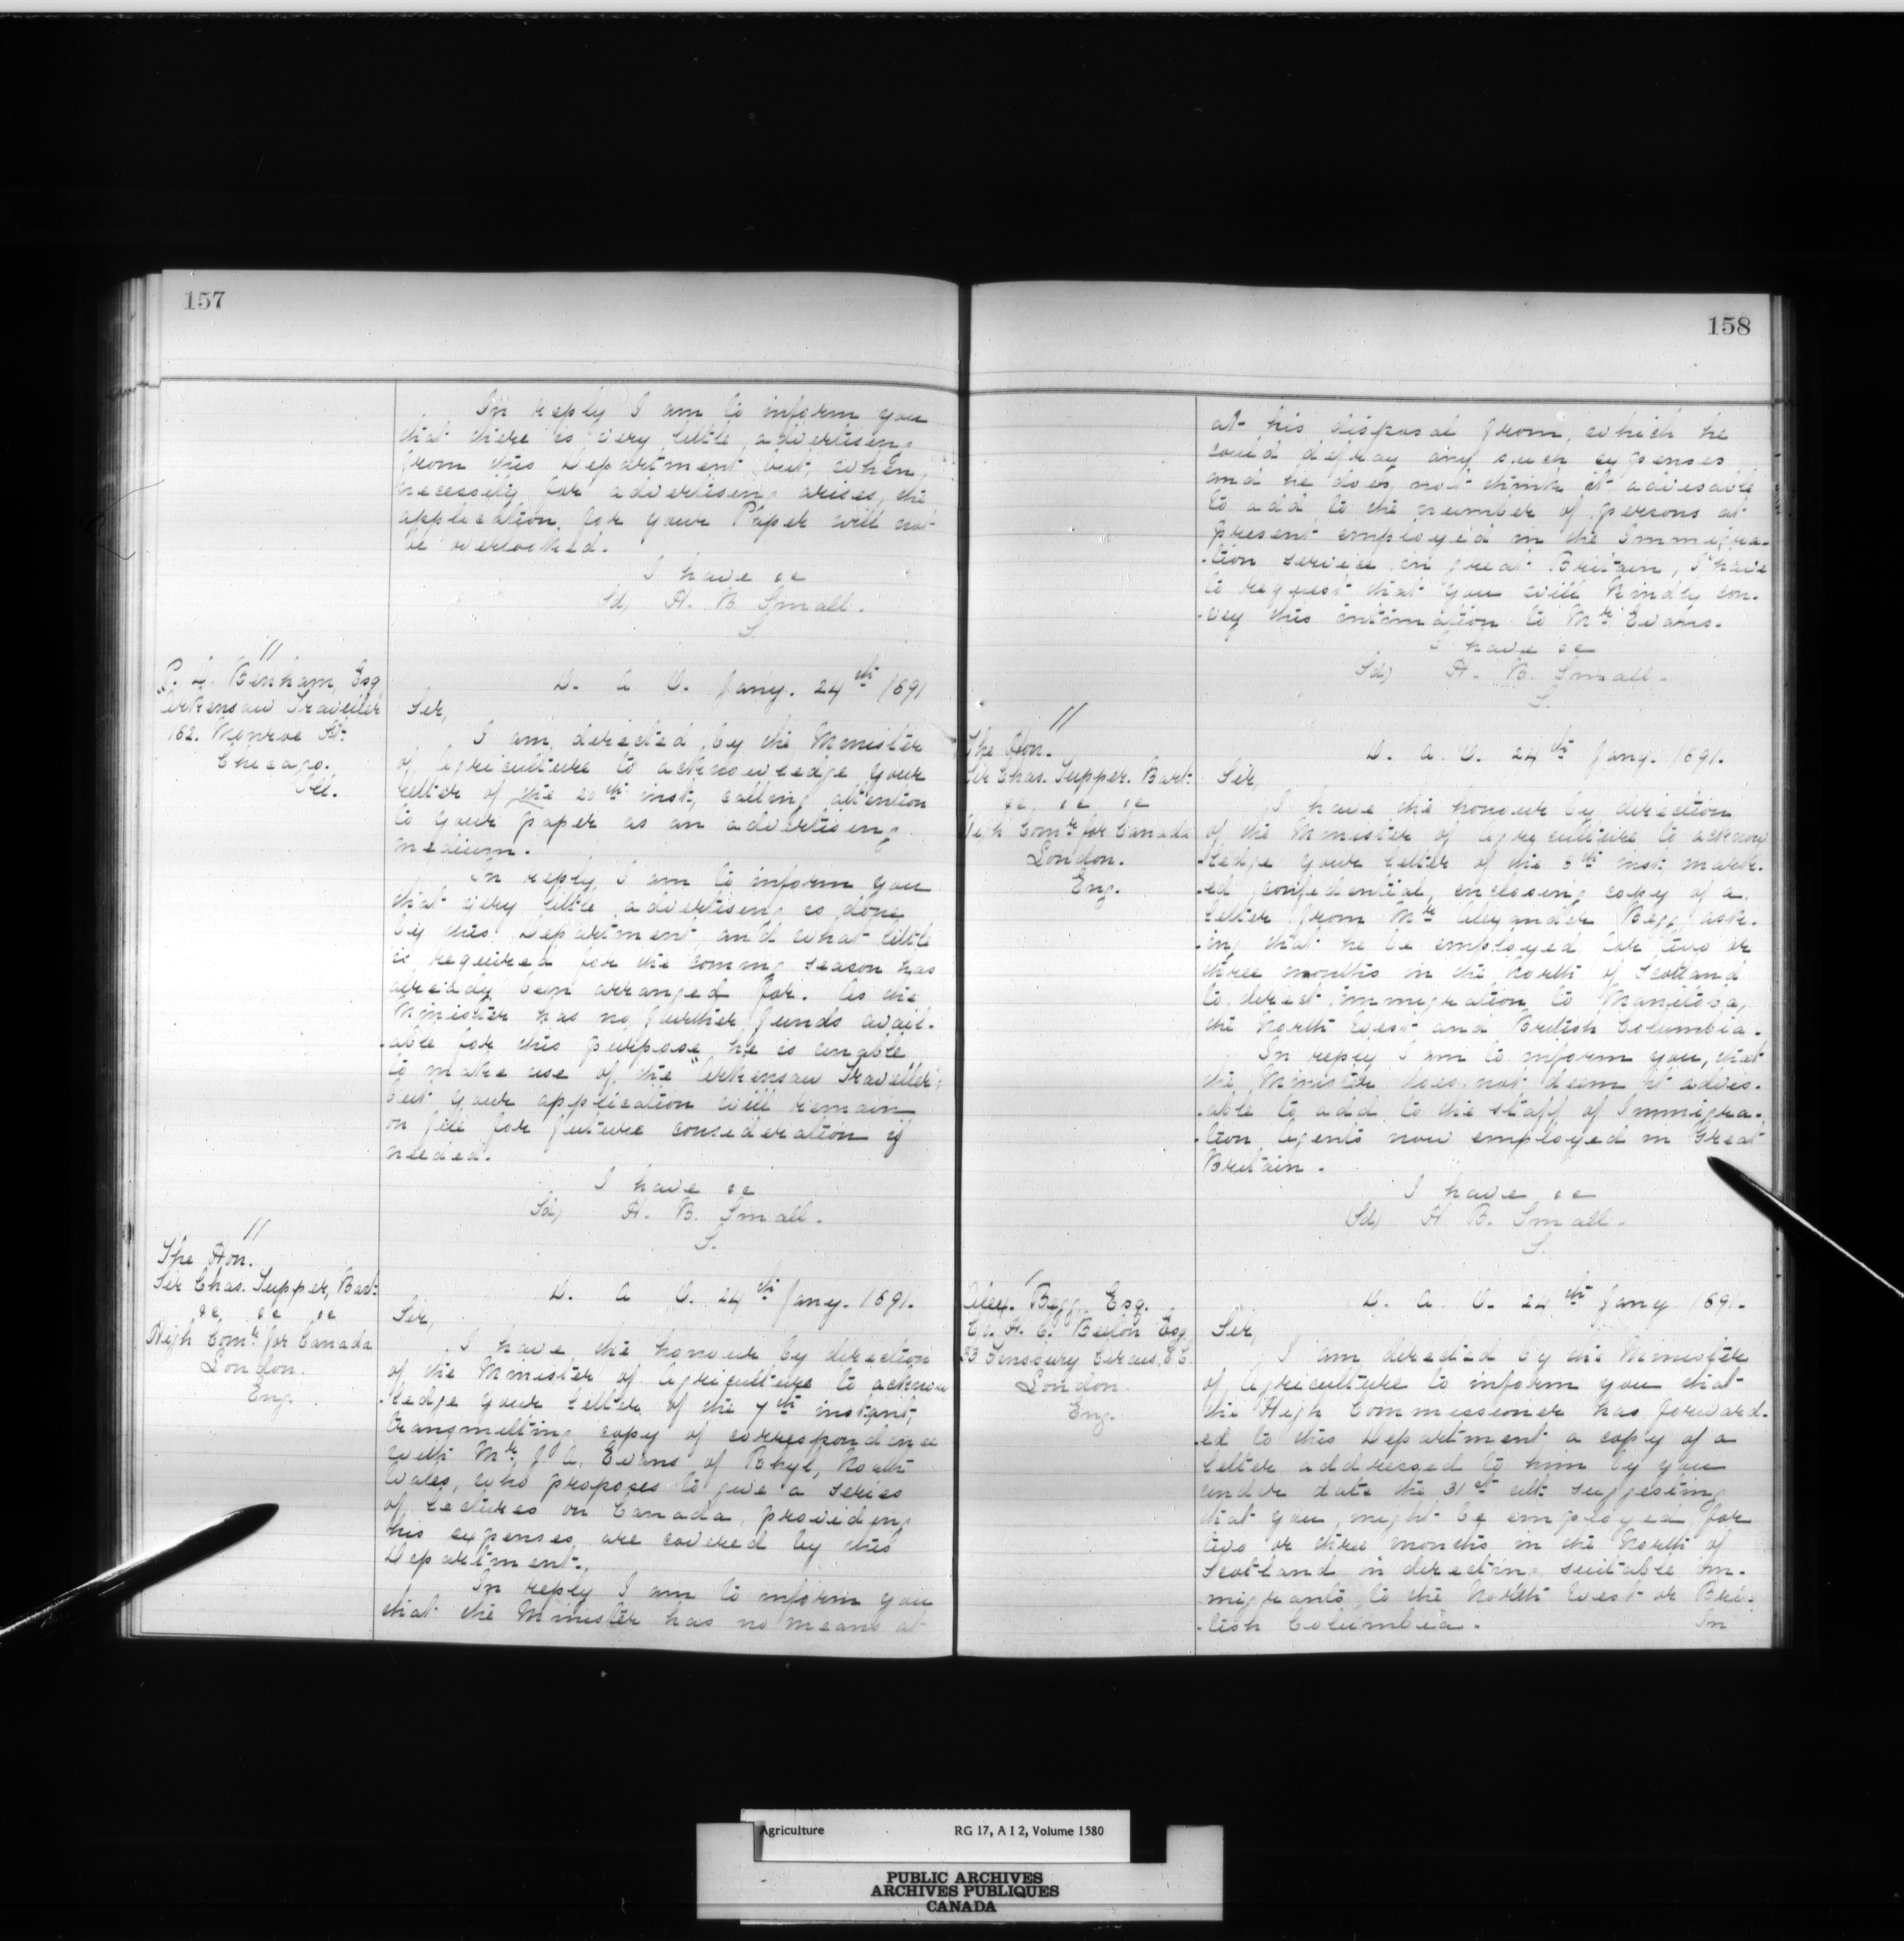 157
In reply I am to inform you
that there is very little advertising
from this Department but when
necessity for advertising arises, the
application for your Paper will not
be overlooked.
I have &c
Sd) H. B. Small.
S.
"
P. L. Benham, Esq
Arkensaw Traveller
182. Monroe St.
Chicago.
Ill.
D. A. O. Jany. 24th 1891
Sir,
I am directed by the Minister
of Agriculture to acknowledge your
letter of the 20th inst, calling attention
to your paper as an advertising
medium.
In reply I am to inform you
that very little advertising is done
by this Department and what little
is required for the coming season has
already been arranged for. As the
Minister has no further funds avail-
-able for this purpose he is unable
to make use of the "Arkensaw Traveller";
but your application will remain
on file for future consideration if
needed.
I have &c
Sd) H. B. Small.
S.
"
The Hon.
Sir Chas. Tupper, Bart.
&c &c &c
High Comr. for Canada
London.
Eng.
D. A. O. 24th Jany. 1891.
Sir,
I have the honour by direction
of the Minister of Agriculture to acknow
-ledge your letter of the 7th instant,
transmitting copy of correspondence
with Mr. J. A. Evans of Rhyl, North
Wales, who proposes to give a series
of lectures on Canada, providing
his expenses are covered by this
Department.
In reply I am to inform you
that the Minister has no means at
158
at his disposal from which he
could defray any such expenses
and he does not think it advisable
to add to the number of persons at
present employed in the Immigra-
-tion service in Great Britain, I have
to request that you will kindly con-
-vey this intimation to Mr. Evans.
I have &c
Sd) H. B. Small.
S.
"
The Hon.
Sir Chas. Tupper. Bart.
&c. &c &c
High Comr. for Canada
London.
Eng.
D. A. O. 24th Jany. 1891.
Sir,
I have the honour by direction
of the Minister of Agriculture to acknow
-ledge your letter of the 8th inst, mark-
-ed confidential, enclosing copy of a
letter from Mr. Alexander Begg ask-
-ing that he be employed for two or
three months in the North of Scotland
to direct immigration to Manitoba,
the North West and British Columbia.
In reply I am to inform you, that
the Minister does not deem it advis-
-able to add to the staff of Immigra-
-tion Agents now employed in Great
Britain.
I have &c
Sd) H. B. Small.
S.
Alex. Begg, Esq.
H. C. Beeton Esq.
33 Finsbury Circus, E.C.
London.
Eng.
D. A. O. 24th Jany 1891.
Sir,
I am directed by the Minister
of Agriculture to inform you that
the High Commissioner has forward-
-ed to this Department a copy of a
letter addressed to him by you
under date the 31st ult. suggesting
that you might be employed for
two or three months in the North of
Scotland in directing suitable im-
migrants to the North West or Bri-
-tish Columbia.
In
Agriculture RG 17, A I 2, Volume 1580
PUBLIC ARCHIVES
ARCHIVES PUBLIQUES
CANADA